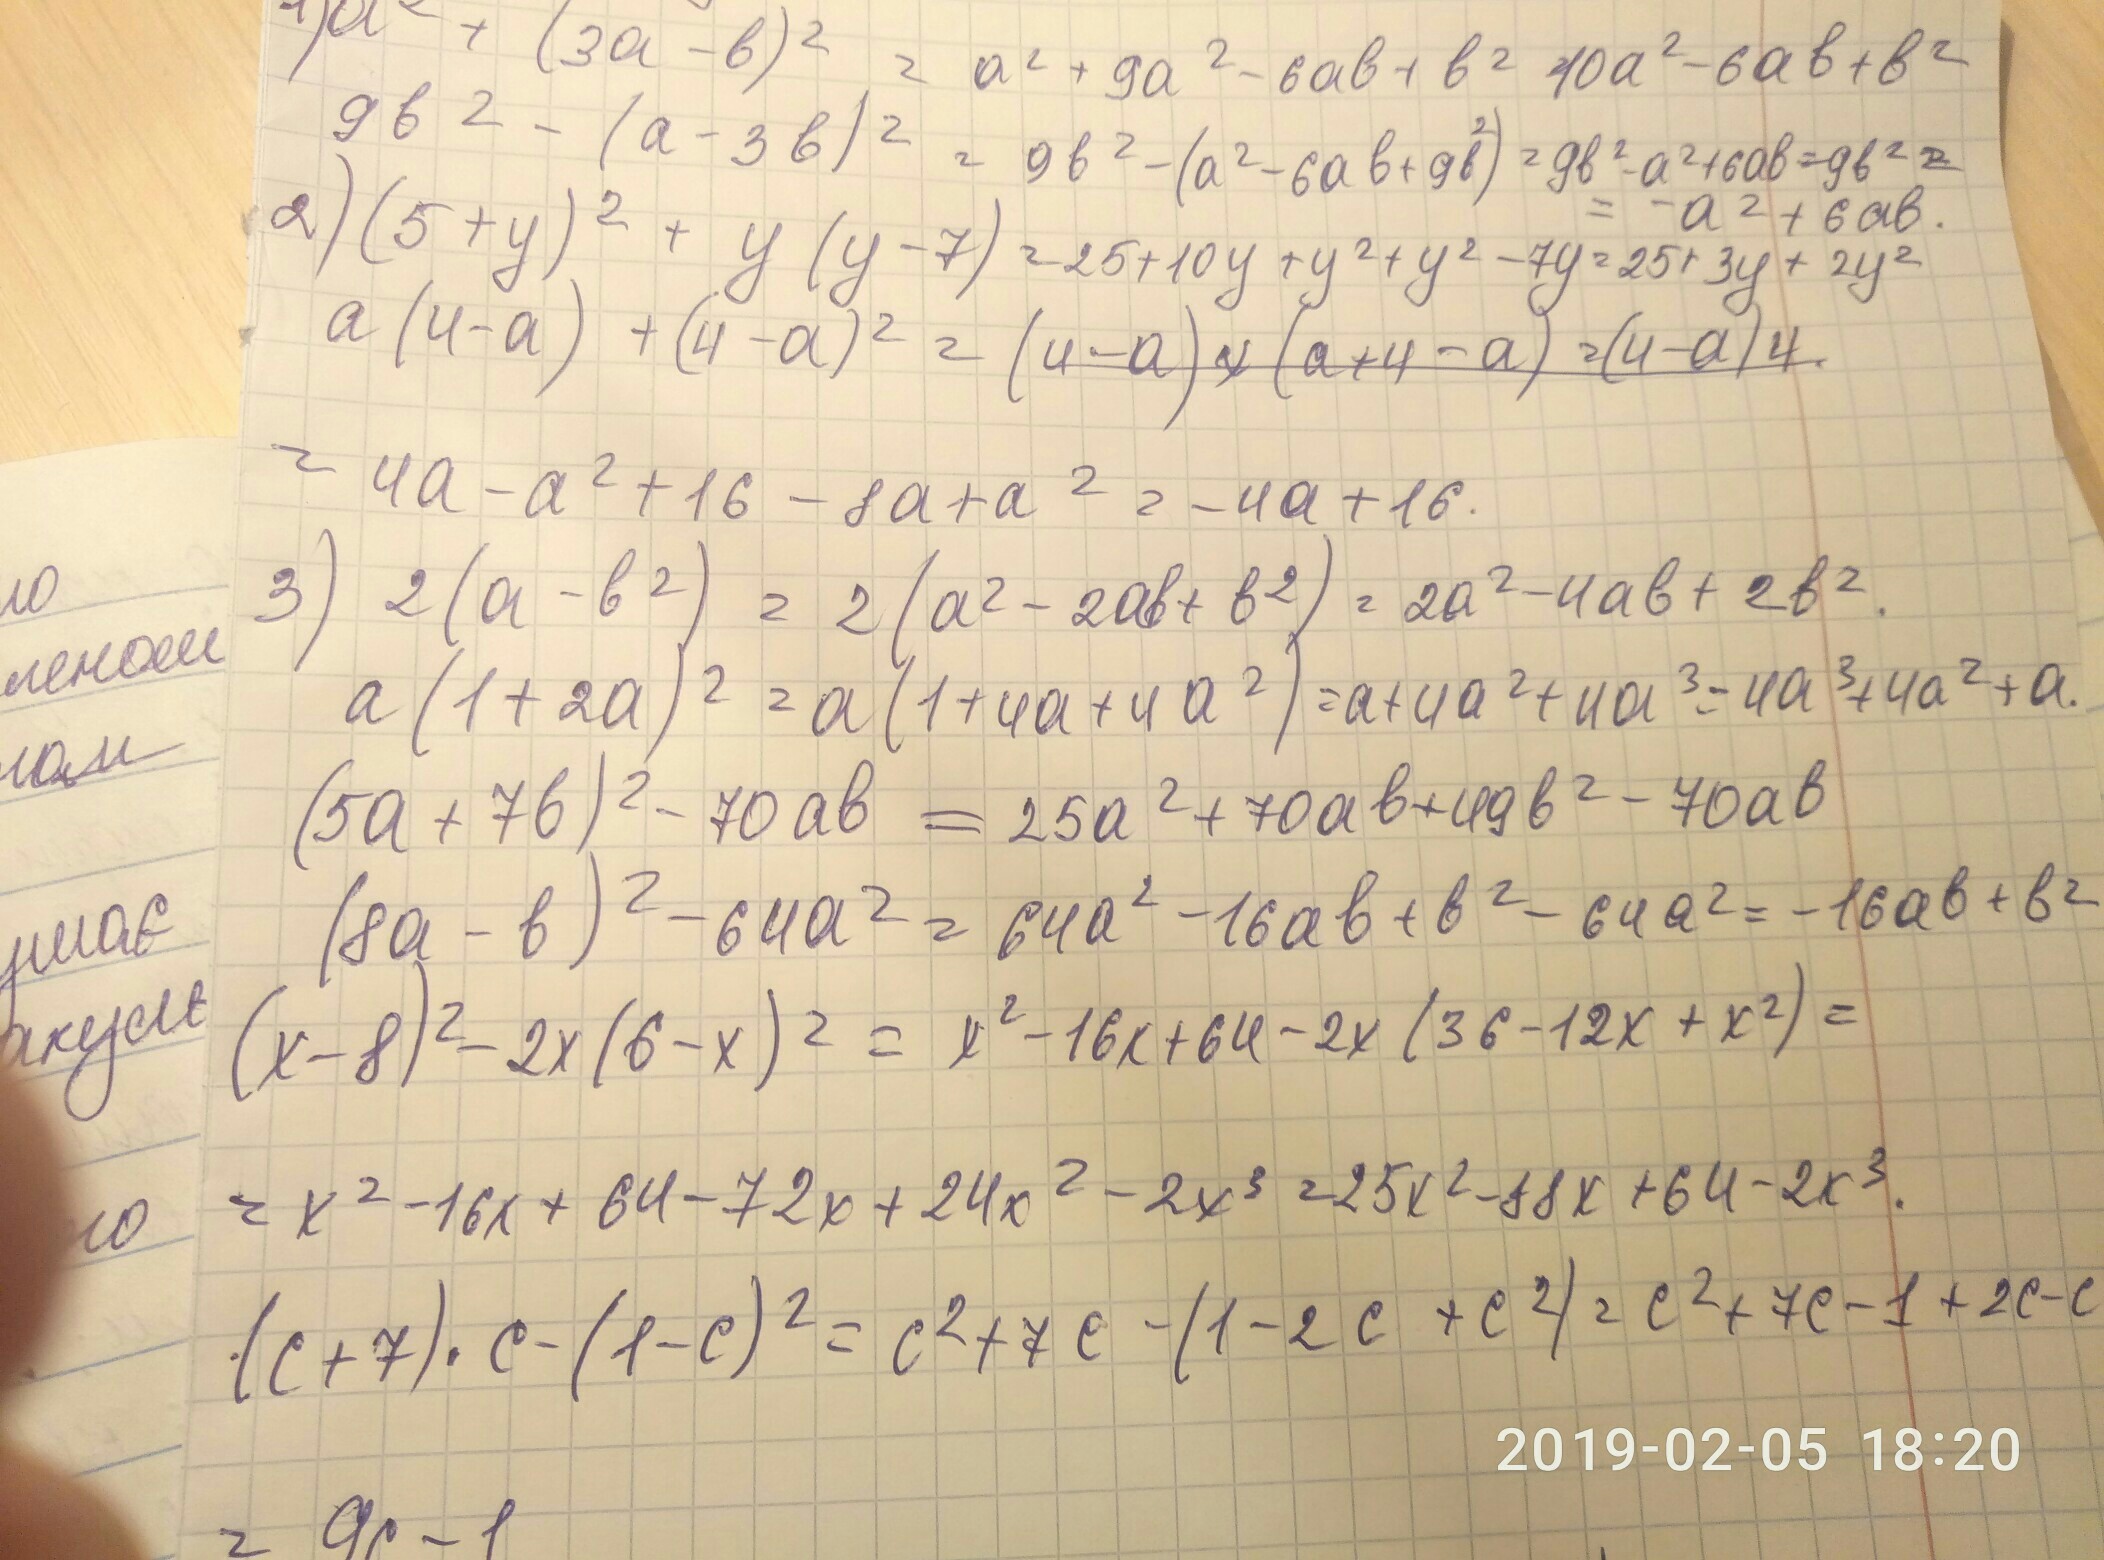 1) a² + (3a - b)² = a² + 9a² - 6ab + b² = 10a² - 6ab + b²
9b² - (a - 3b)² = 9b² - (a² - 6ab + 9b²) = 9b² - a² + 6ab = 9b² =
= -a² + 6ab.
2) (5 + y)² + y (y - 7) = 25 + 10y + y² + y² - 7y = 25 + 3y + 2y²
a (4 - a) + (4 - a)² = (4 - a) × (a + 4 - a) = (4 - a) 4.
= 4a - a² + 16 - 8a + a² = -4a + 16.
3) 2 (a - b²) = 2 (a² - 2ab + b²) = 2a² - 4ab + 2b².
a (1 + 2a)² = a (1 + 4a + 4a²) = a + 4a² + 4a³ = 4a³ + 4a² + a.
(5a + 7b)² - 70ab = 25a² + 70ab + 49b² - 70ab
(8a - b)² - 64a² = 64a² - 16ab + b² - 64a² = -16ab + b²
(x - 8)² - 2x (6 - x)² = x² - 16x + 64 - 2x (36 - 12x + x²) =
= x² - 16x + 64 - 72x + 24x² - 2x³ = 25x² - 88x + 64 - 2x³.
(c + 7) · c - (1 - c)² = c² + 7c - (1 - 2c + c²) = c² + 7c - 1 + 2c - c
= 9c - 1
2019-02-05 18:20